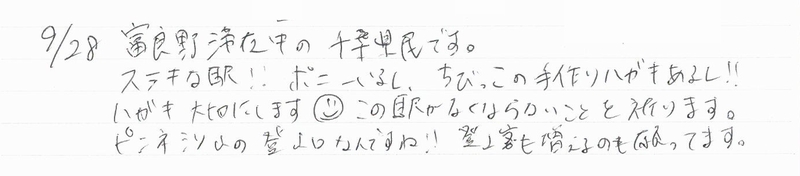 9/28 富良野滞在中の千葉県民です。
ステキな駅!! ポニーいるし、ちびっこの手作りハガキあるし!!
ハガキ大切にします☺ この駅がなくならないことを祈ります。
ピンネシリの登山口なんですね!! 登山客も増えるのも願ってます。